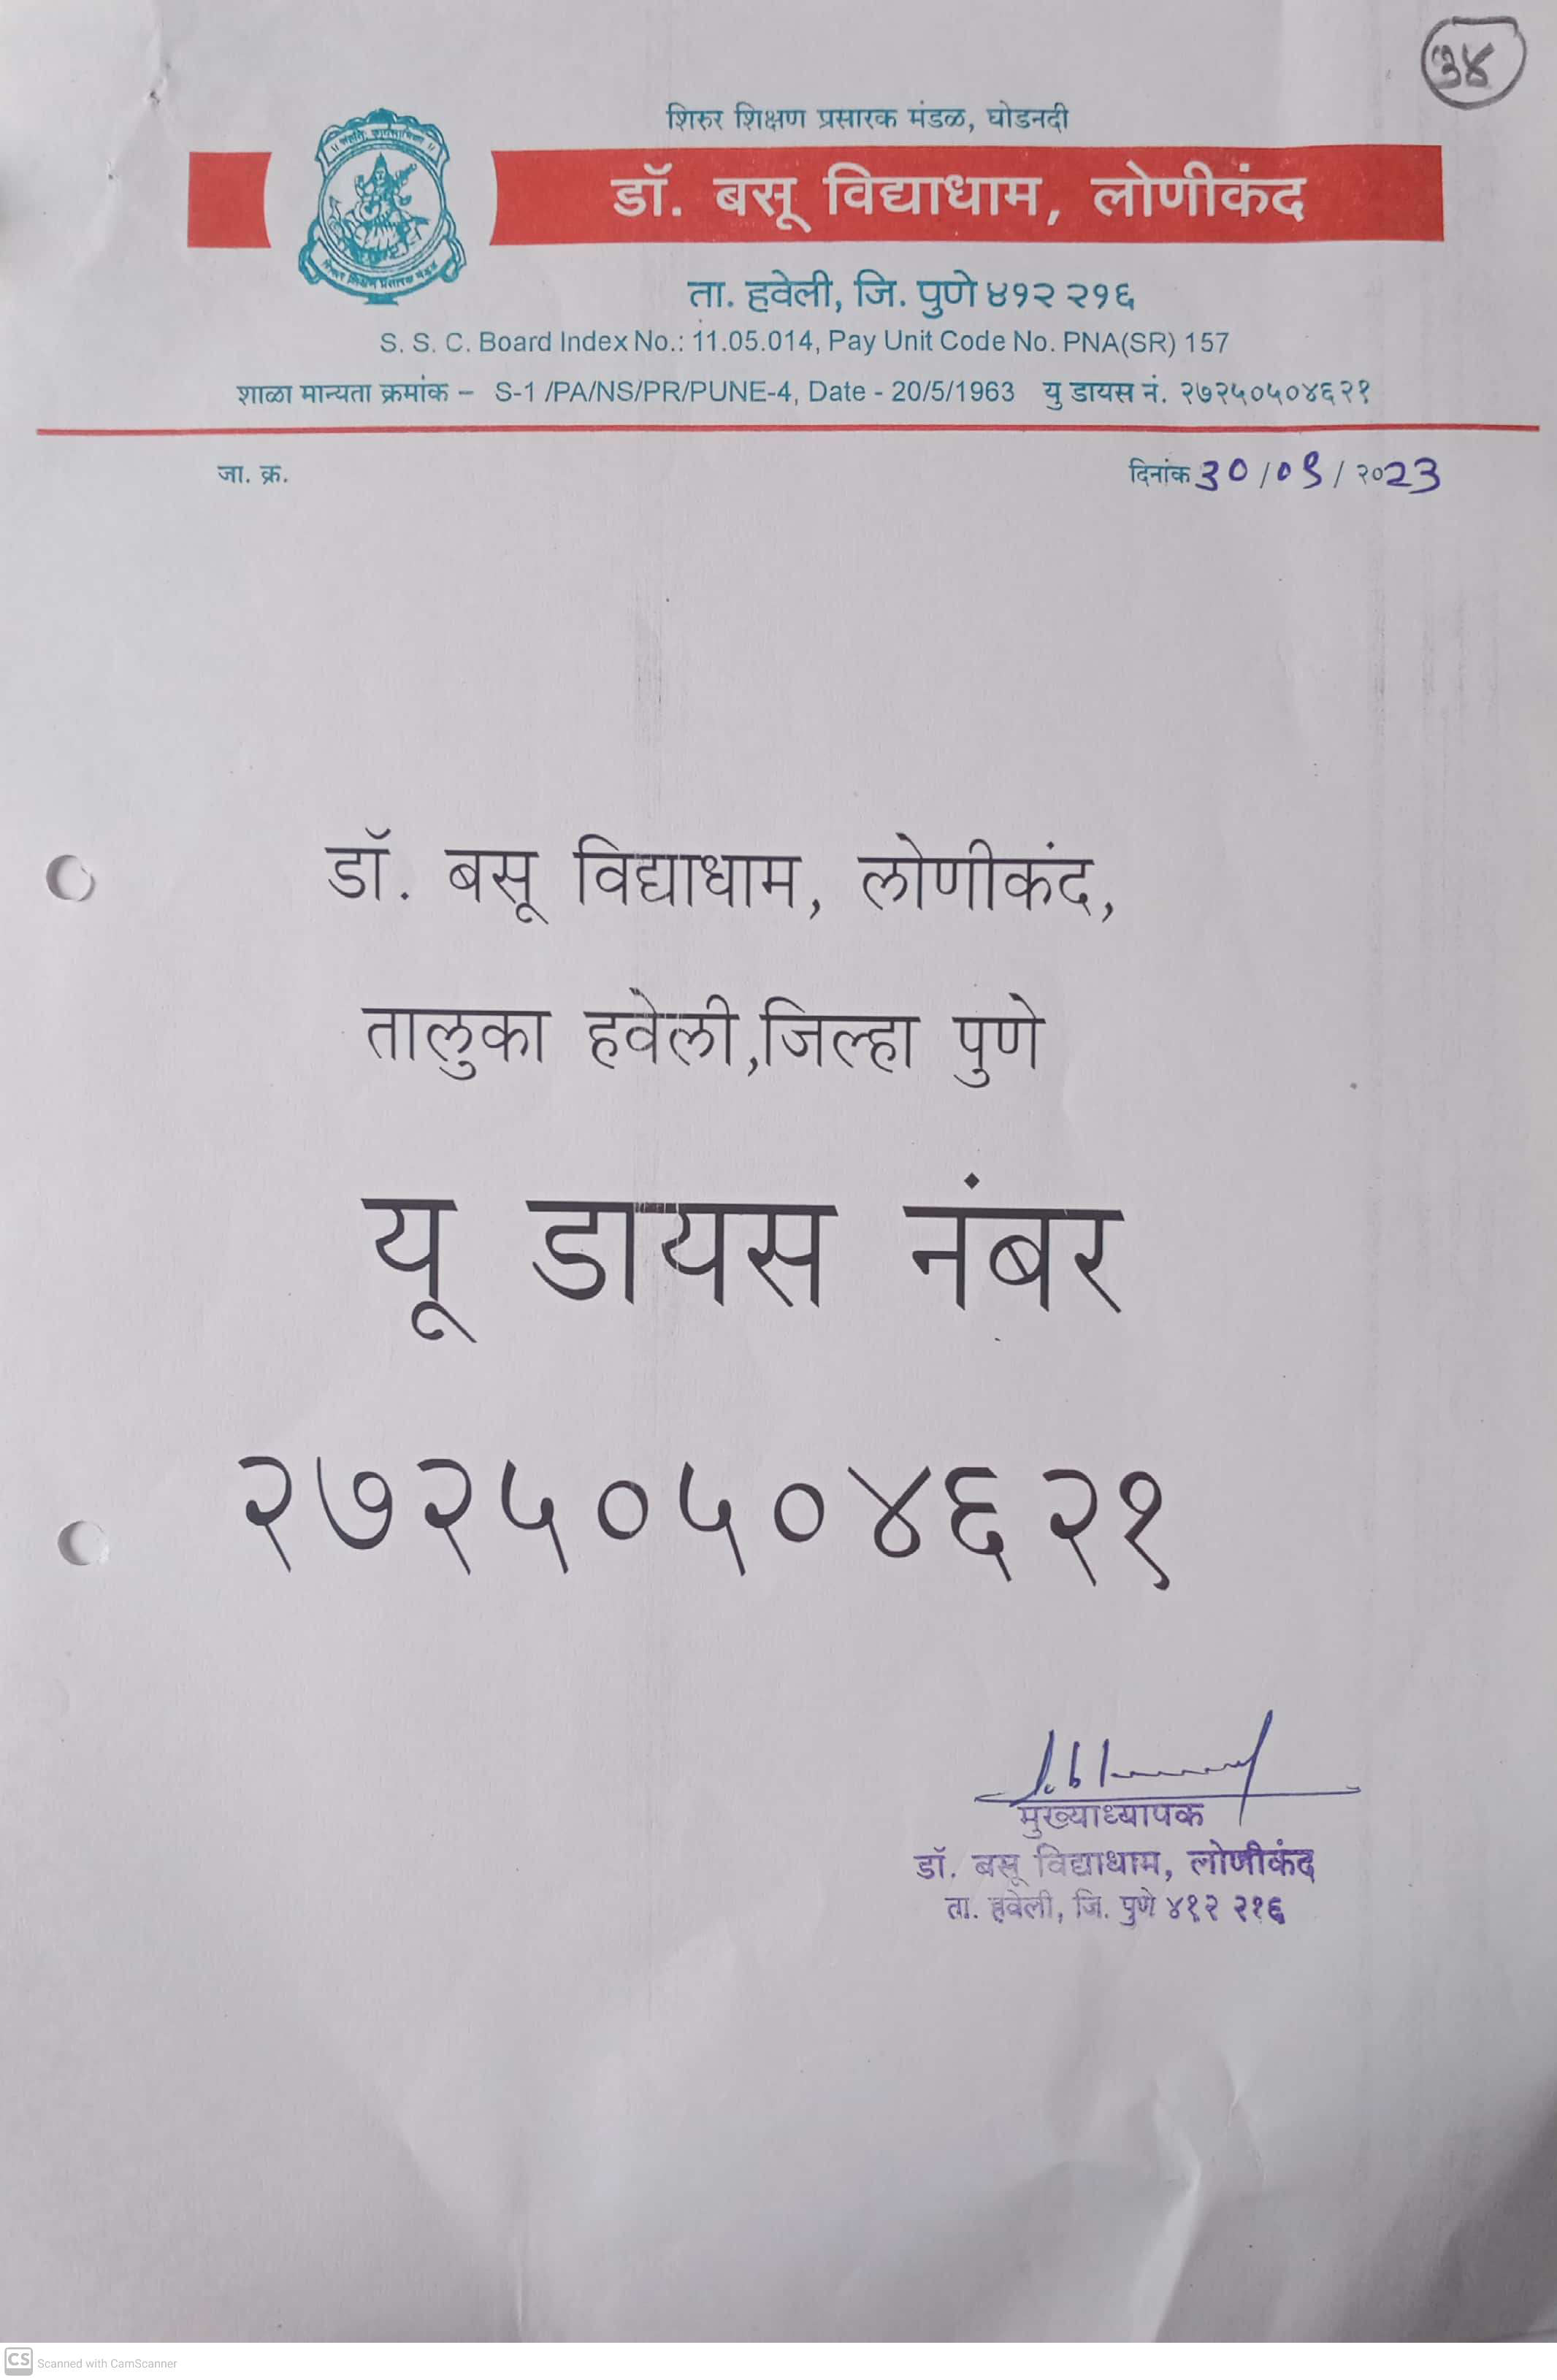 ३४
शिरुर शिक्षण प्रसारक मंडळ, घोडनदी
डॉ. बसू विद्याधाम, लोणीकंद
शिरुर शिक्षण प्रसारक मंडळ
ता. हवेली, जि. पुणे ४१२ २१६
S. S. C. Board Index No.: 11.05.014, Pay Unit Code No. PNA(SR) 157
शाळा मान्यता क्रमांक – S-1 /PA/NS/PR/PUNE-4, Date - 20/5/1963 यु डायस नं. २७२५०५०४६२१
जा. क्र. दिनांक 30/09/२०23
डॉ. बसू विद्याधाम, लोणीकंद,
तालुका हवेली,जिल्हा पुणे
यू डायस नंबर
२७२५०५०४६२१
मुख्याध्यापक
डॉ. बसू विद्याधाम, लोणीकंद
ता. हवेली, जि. पुणे ४१२ २१६
CS Scanned with CamScanner